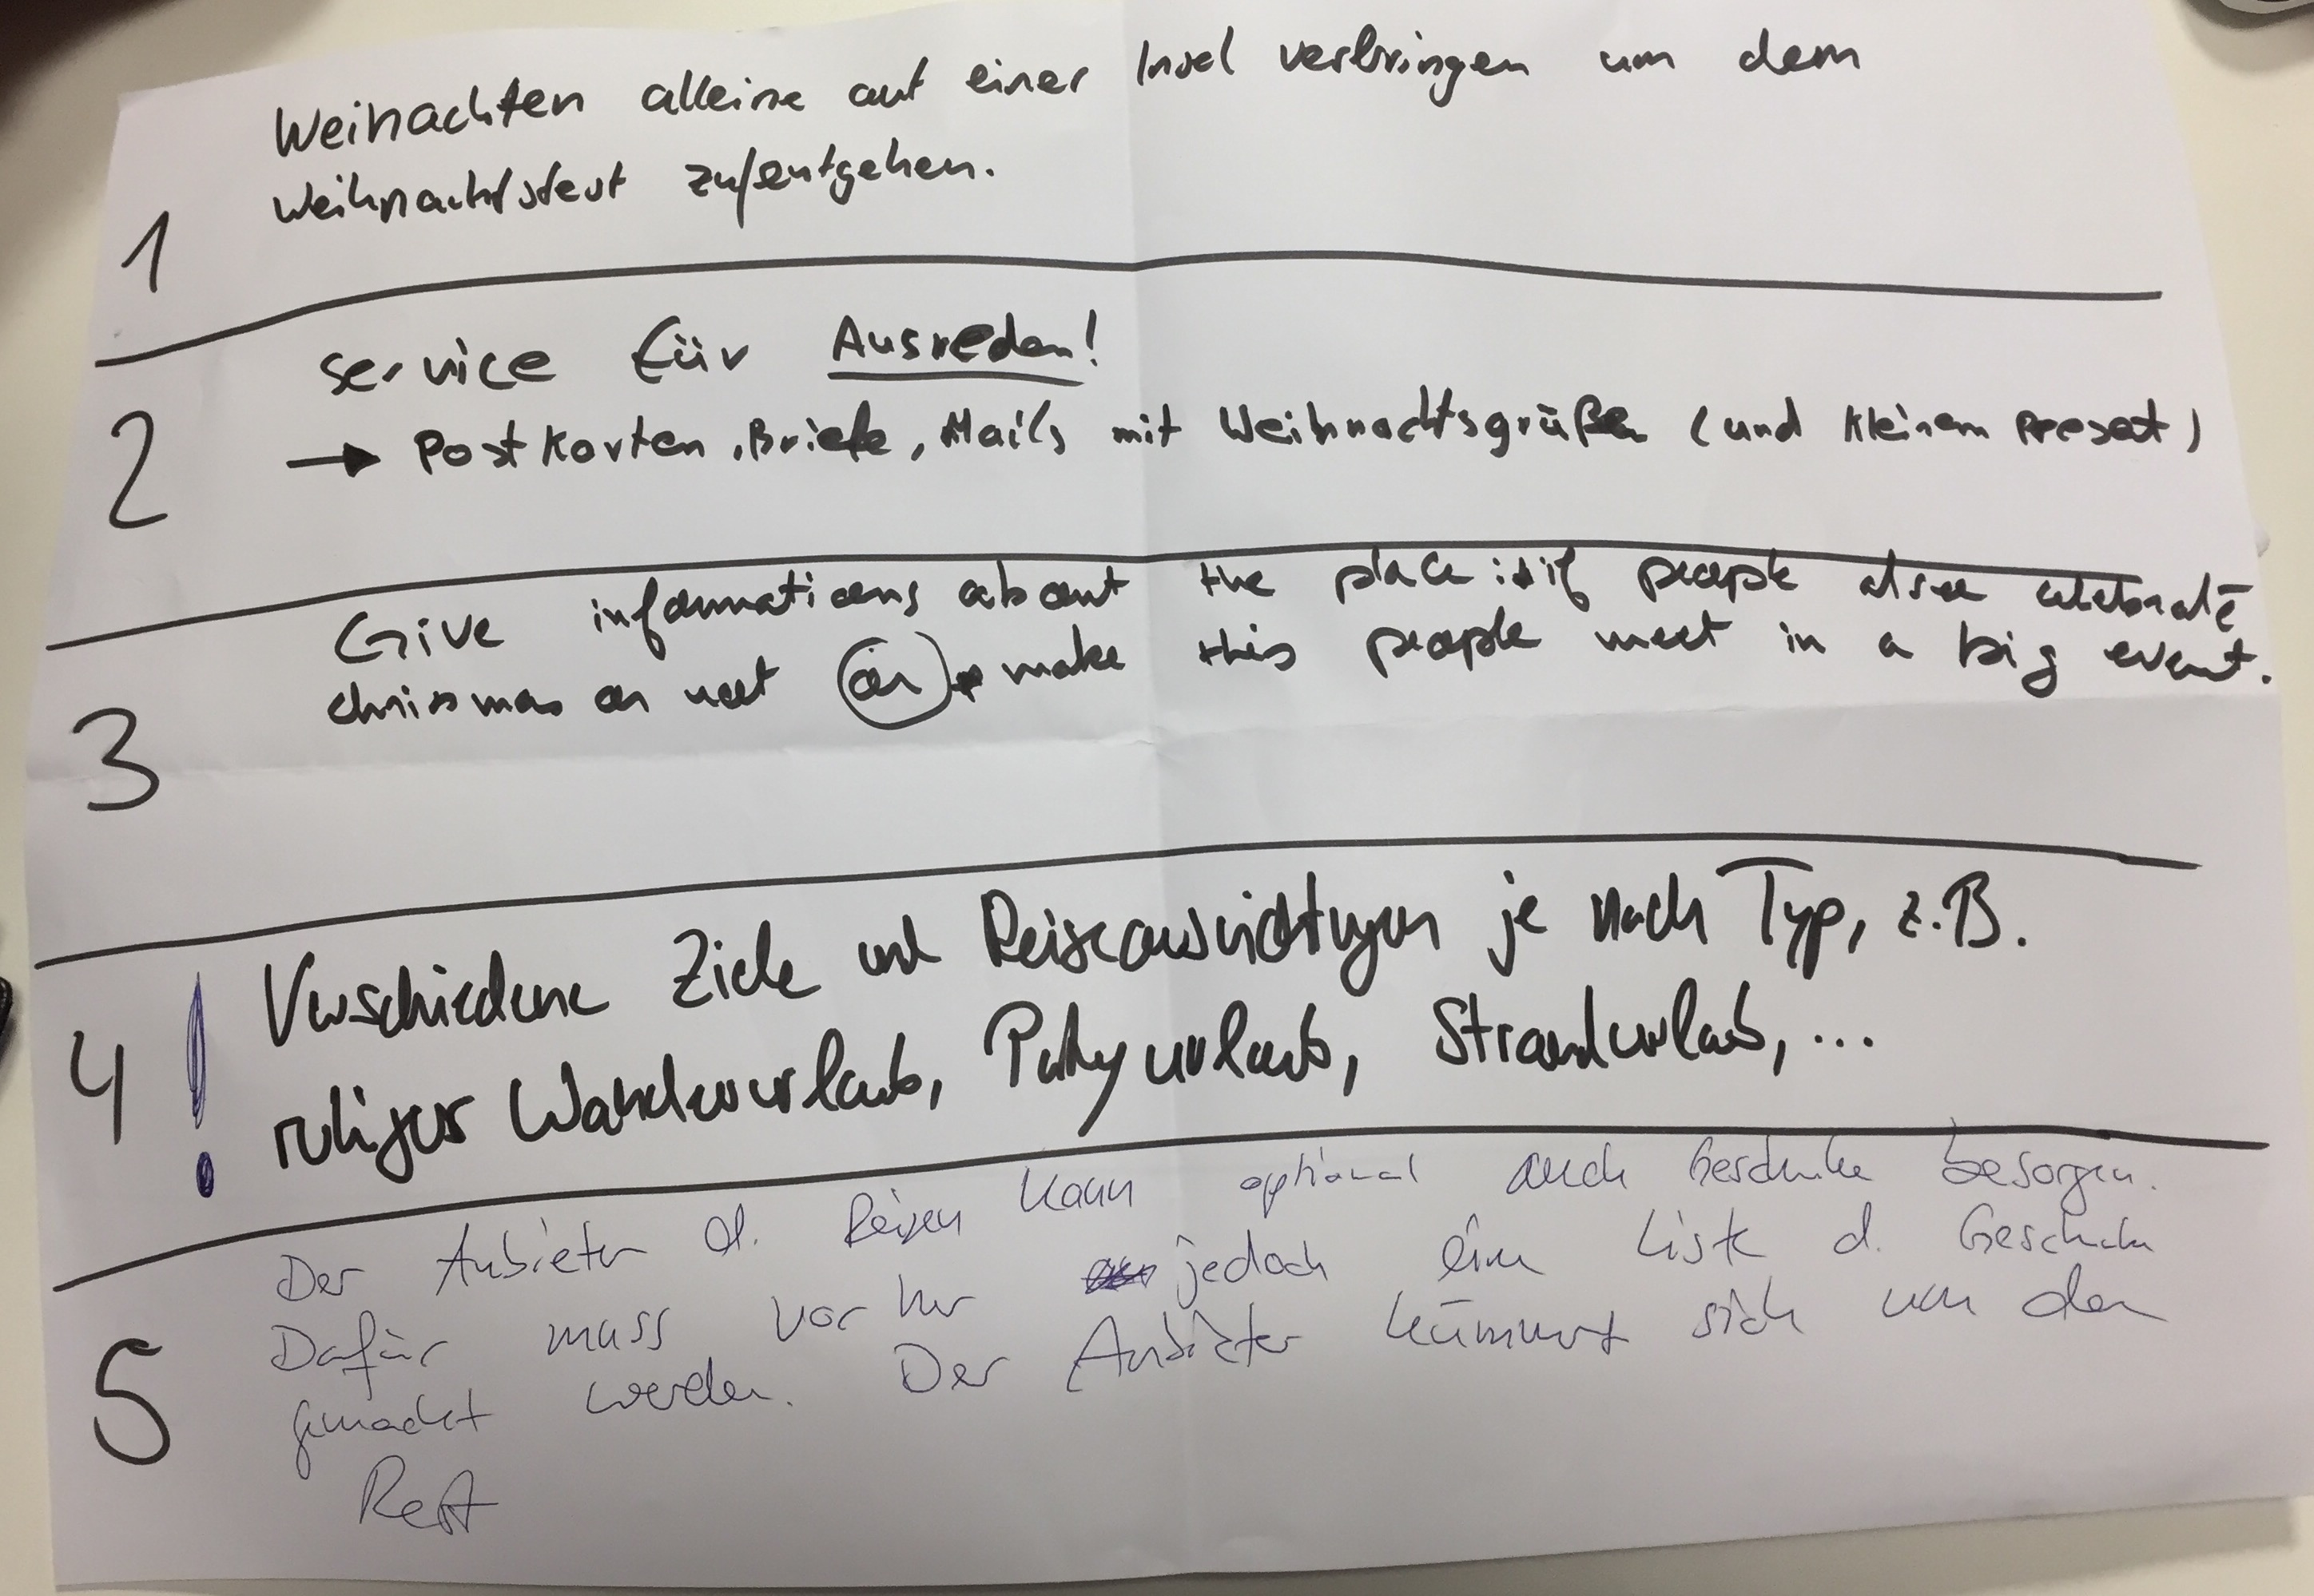 Weihnachten alleine auf einer Insel verbringen um dem
1 Weihnachtsfest zu/entgehen.
service für Ausreden!
2 → Postkarten, Briefe, Mails mit Weihnachtsgrüßen (und kleinem Present)
Give informations about the place: if people there celebrate
chrismas or not (or) make this people meet in a big event.
3
Verschiedene Ziele und Reiseausrichtungen je nach Typ, z.B.
4! ruhiger Wanderurlaub, Partyurlaub, Strandurlaub, ...
Der Anbieter d. Reisen kann optional auch Geschenke besorgen.
Dafür muss vorher jedoch eine Liste d. Geschenke
5 gemacht werden. Der Anbieter kümmert sich um den
Rest